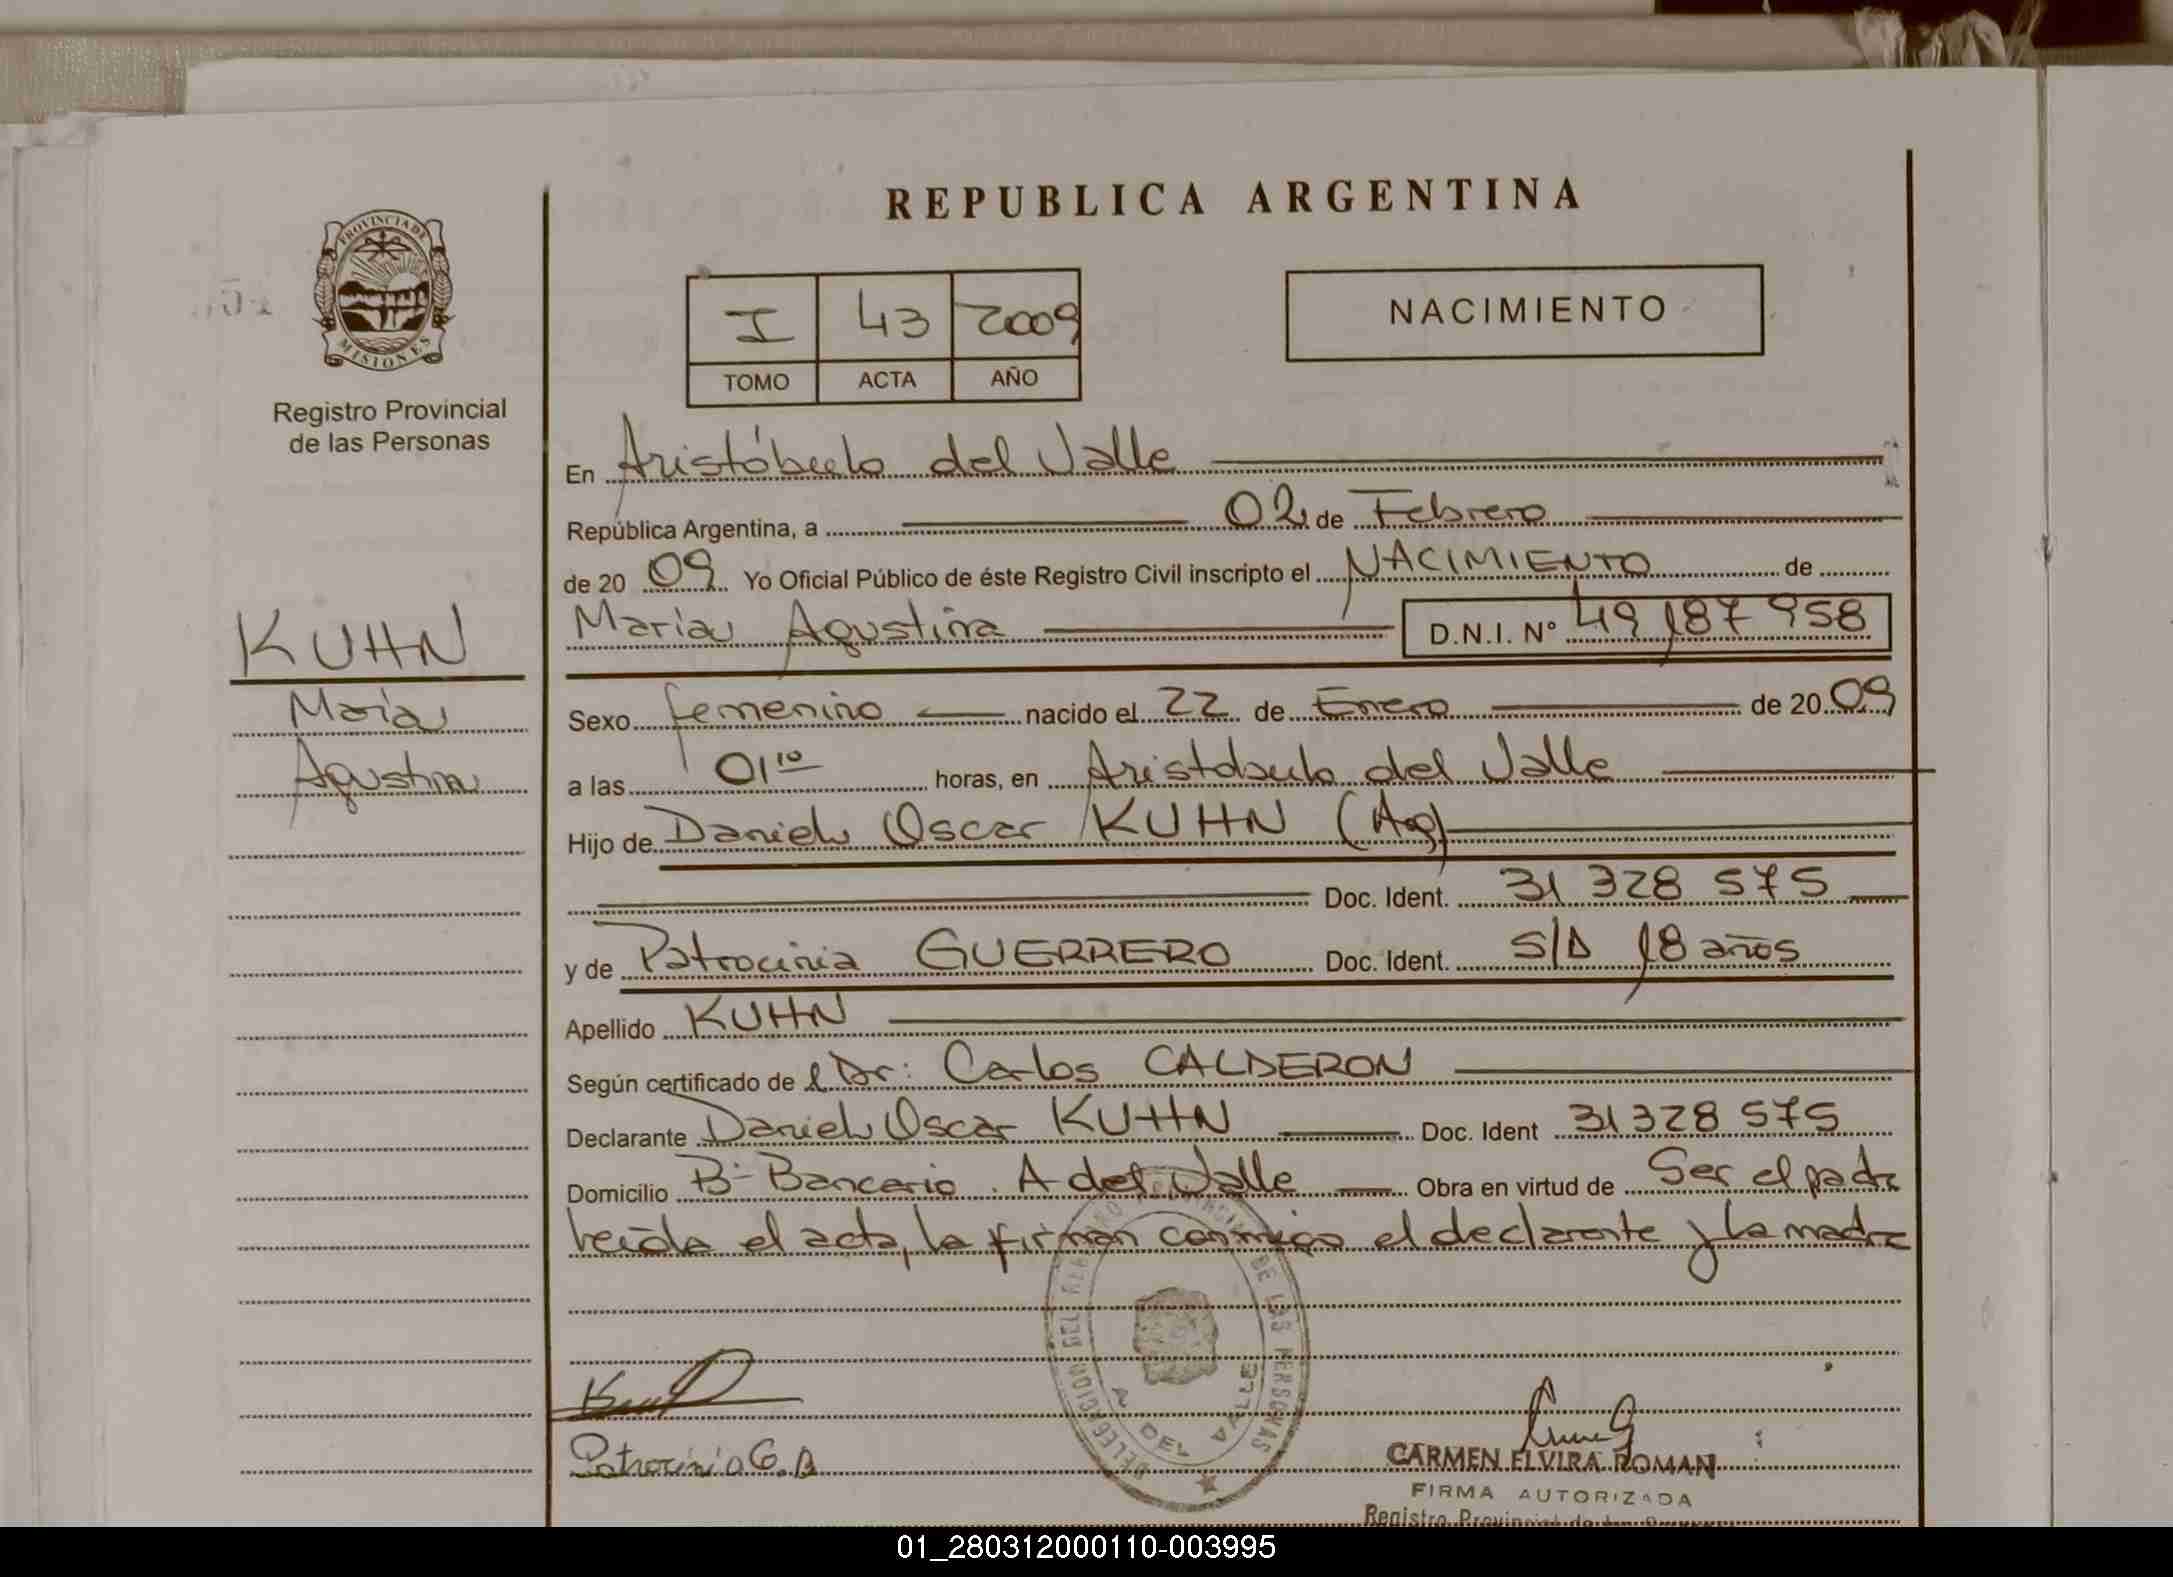 REPUBLICA ARGENTINA
PROVINCIA DE
MISIONES
Registro Provincial
de las Personas
I 43 2009
TOMO ACTA AÑO
NACIMIENTO
En Aristóbulo del Valle
República Argentina, a 02 de Febrero
de 20 09 Yo Oficial Público de éste Registro Civil inscripto el NACIMIENTO de
María Agustina D.N.I. N° 49 187 958
KUHN
María
Agustina
Sexo femenino nacido el 22 de Enero de 20 09
a las 01 10 horas, en Aristóbulo del Valle
Hijo de Daniel Oscar KUHN (Ag)
Doc. Ident. 31 328 575
y de Patrocinia GUERRERO Doc. Ident. S/D 18 años
Apellido KUHN
Según certificado de el Dr: Carlos CALDERON
Declarante Daniel Oscar KUHN Doc. Ident 31 328 575
Domicilio B- Bancario. A del Valle Obra en virtud de Ser el padre
leída el acta, la firman conmigo el declarante y la madre
DELEGACION DEL REGISTRO PROVINCIAL DE LAS PERSONAS
A DEL VALLE
Patrocinia G. B
CARMEN ELVIRA ROMAN
FIRMA AUTORIZADA
Registro Provincial de las Personas
01_280312000110-003995